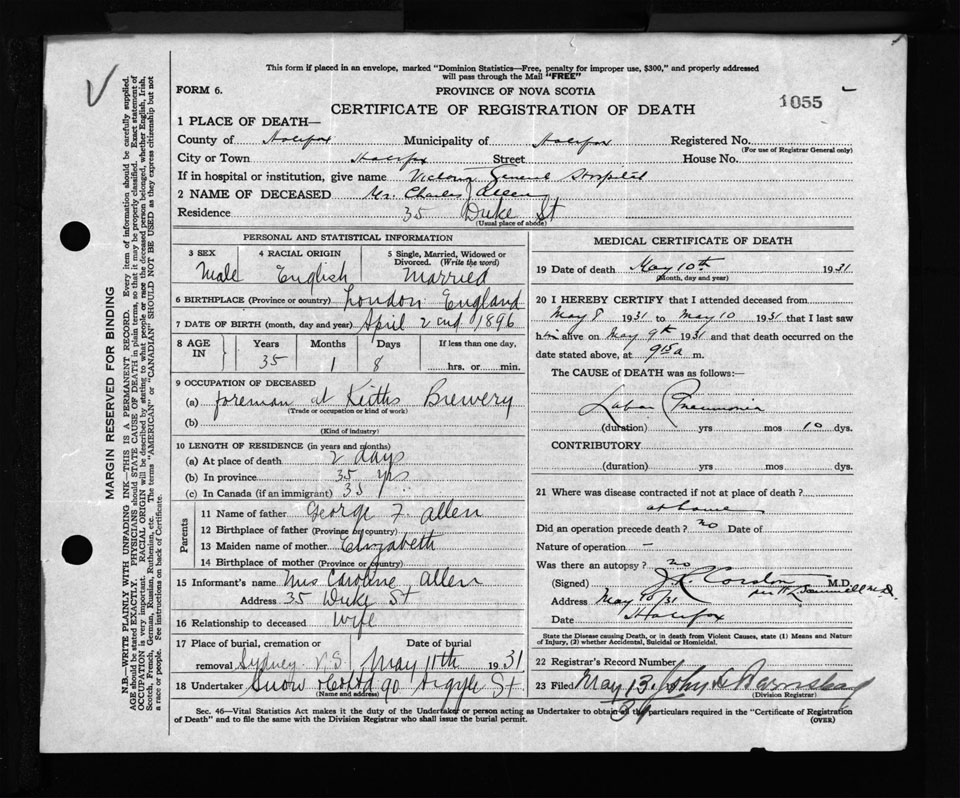 This form if placed in an envelope, marked "Dominion Statistics—Free, penalty for improper use, $300," and properly addressed
will pass through the Mail "FREE"
FORM 6.
PROVINCE OF NOVA SCOTIA
CERTIFICATE OF REGISTRATION OF DEATH
1055
1 PLACE OF DEATH—
County of Halifax Municipality of Halifax Registered No.
(For use of Registrar General only)
City or Town Halifax Street House No.
If in hospital or institution, give name Victoria General Hospital
2 NAME OF DECEASED Mr. Charles Allen
Residence 35 Duke St
(Usual place of abode)
PERSONAL AND STATISTICAL INFORMATION
3 SEX 4 RACIAL ORIGIN 5 Single, Married, Widowed or
Divorced. (Write the word)
Male English Married
6 BIRTHPLACE (Province or country) London England
7 DATE OF BIRTH (month, day and year) April 2nd 1896
8 AGE IN Years Months Days If less than one day,
35 1 8 hrs. or min.
9 OCCUPATION OF DECEASED
(a) foreman at Kieths Brewery
(Trade or occupation or kind of work)
(b)
(Kind of industry)
10 LENGTH OF RESIDENCE (in years and months)
(a) At place of death 2 days
(b) In province 35 yrs
(c) In Canada (if an immigrant) 35
Parents
11 Name of father George F. Allen
12 Birthplace of father (Province or country)
13 Maiden name of mother Elizabeth
14 Birthplace of mother (Province or country)
15 Informant's name Mrs Caroline Allen
Address 35 Duke St
16 Relationship to deceased Wife
17 Place of burial, cremation or Date of burial
removal Sydney N.S. May 11th 1931
18 Undertaker Snow & Co Ltd 90 Argyle St
(Name and address)
MEDICAL CERTIFICATE OF DEATH
19 Date of death May 10th 1931
(Month, day and year)
20 I HEREBY CERTIFY that I attended deceased from
May 8 1931 to May 10 1931 that I last saw
him alive on May 9th 1931 and that death occurred on the
date stated above, at 9 15 a m.
The CAUSE of DEATH was as follows:—
Lobar Pneumonia
(duration) yrs mos 10 dys.
CONTRIBUTORY
(duration) yrs mos dys.
21 Where was disease contracted if not at place of death?
at home
Did an operation precede death? no Date of
Nature of operation —
Was there an autopsy? no
(Signed) M.D.
Address May 10/31
Date Halifax
State the Disease causing Death, or in death from Violent Causes, state (1) Means and Nature
of Injury, (2) whether Accidental, Suicidal or Homicidal.
22 Registrar's Record Number
23 Filed May 13 31 John
(Division Registrar)
Sec. 46—Vital Statistics Act makes it the duty of the Undertaker or person acting as Undertaker to obtain all the particulars required in the "Certificate of Registration
of Death" and to file the same with the Division Registrar who shall issue the burial permit.
(OVER)
MARGIN RESERVED FOR BINDING
N.B.—WRITE PLAINLY WITH UNFADING INK—THIS IS A PERMANENT RECORD. Every item of information should be carefully supplied.
AGE should be stated EXACTLY. PHYSICIANS should STATE CAUSE OF DEATH in plain terms, so that it may be properly classified. Exact statement of
OCCUPATION is very important. RACIAL ORIGIN will be described by stating to what people or race the deceased person belonged, whether English, Irish,
Scotch, French, German, Russian, Ruthenian, etc. The terms "AMERICAN" or "CANADIAN" SHOULD NOT BE USED as they express citizenship but not
a race or people. See instructions on back of Certificate.